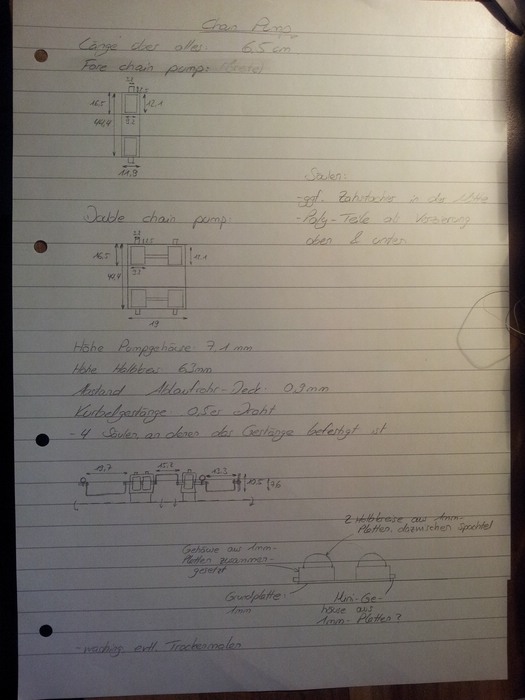 Chain Pump
Länge über alles: 6,5 cm
Fore chain pump:
2,2
16,5
12,1
44,4
9,2
11,9
Säulen:
- ggf. Zahnstocher in die Mitte
- Poly-Teile als Verzierung
oben & unten
Double chain pump:
2,2
16,5
12,1
44,4
9,2
19
Höhe Pumpgehäuse: 7,1 mm
Höhe Halbkreis: 6,3 mm
Abstand Ablaufrohr-Deck: 0,9mm
Kurbelgestänge: 0,5er Draht
- 4 Säulen an denen das Gestänge befestigt ist
19,7
12,3
10,5
9,6
2 Halbkreise aus 1mm-
Platten, dazwischen Spachtel
Gehäuse aus 1mm-
Platten zusammen-
gesetzt
Grundplatte:
1mm
Mini-Ge-
häuse aus
1mm-Platten?
- washing evtl. Trockenmalen